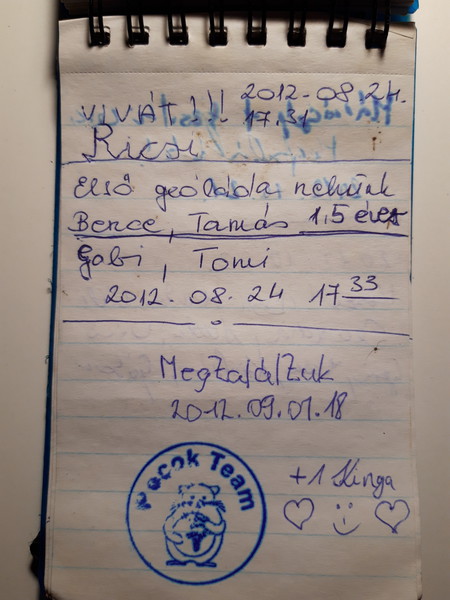 2012-08-24.
VIVÁT!!! 17.31
Ricsi
Első geóláda nekünk
Bence, Tamás 1,5 éves
Gabi, Tomi
2012. 08. 24 17 33
Megta/á/tuk
2012.09.01.18
Pocok Team
+1 Kinga